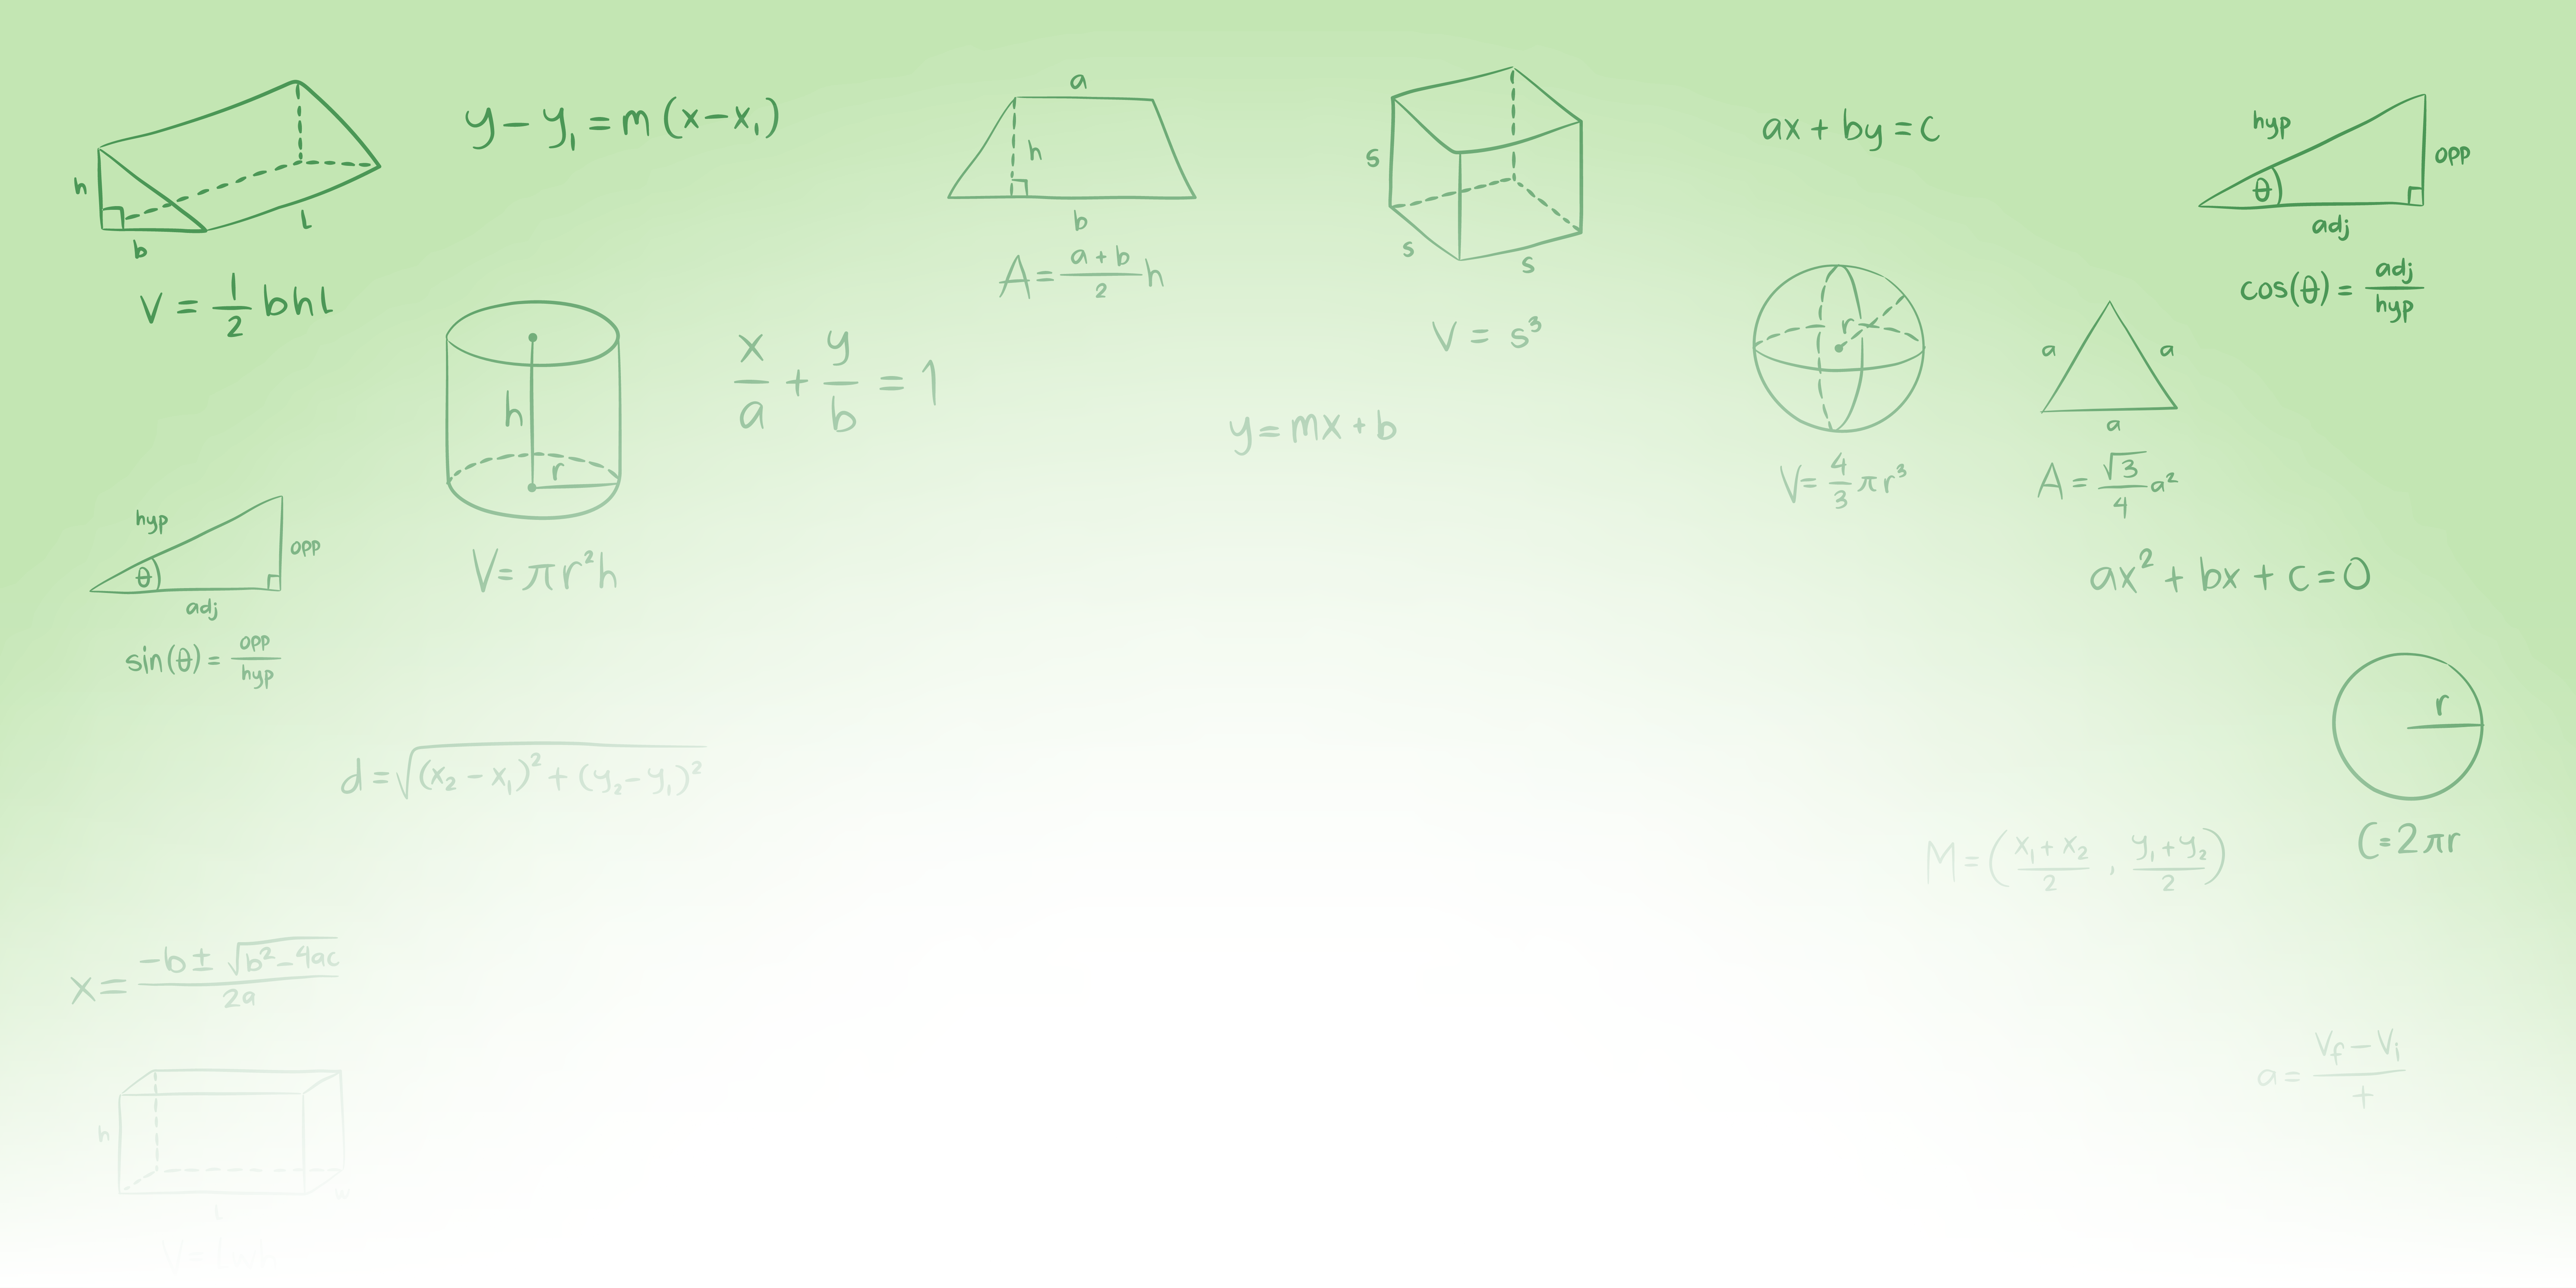 h
b
L
V = 1/2 bhL
y − y₁ = m(x − x₁)
a
h
b
A = (a + b)/2 h
s
s
s
V = s³
ax + by = c
hyp
opp
θ
adj
cos(θ) = adj/hyp
h
r
V = πr²h
x/a + y/b = 1
y = mx + b
r
V = 4/3 πr³
a
a
a
A = √3/4 a²
hyp
opp
θ
adj
sin(θ) = opp/hyp
ax² + bx + c = 0
r
C = 2πr
d = √((x₂ − x₁)² + (y₂ − y₁)²)
M = ((x₁ + x₂)/2 , (y₁ + y₂)/2)
x = (−b ± √(b² − 4ac))/2a
a = (Vf − Vi)/t
h
w
L